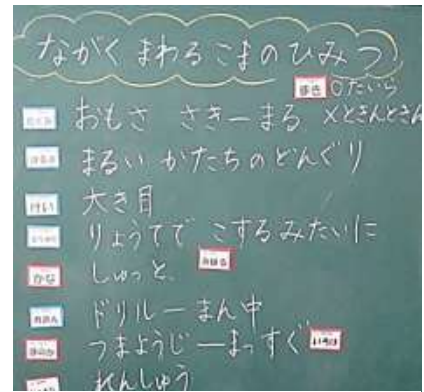 ながく まわる こまの ひみつ
まき ○たいら
おもさ さきーまる ×とんとん
まるい かたちの どんぐり
けい 大き目
りょうてで こする みたいに
かな しゅっと、
ドリルーまん中
つまようじーまっすぐ
れんしゅう